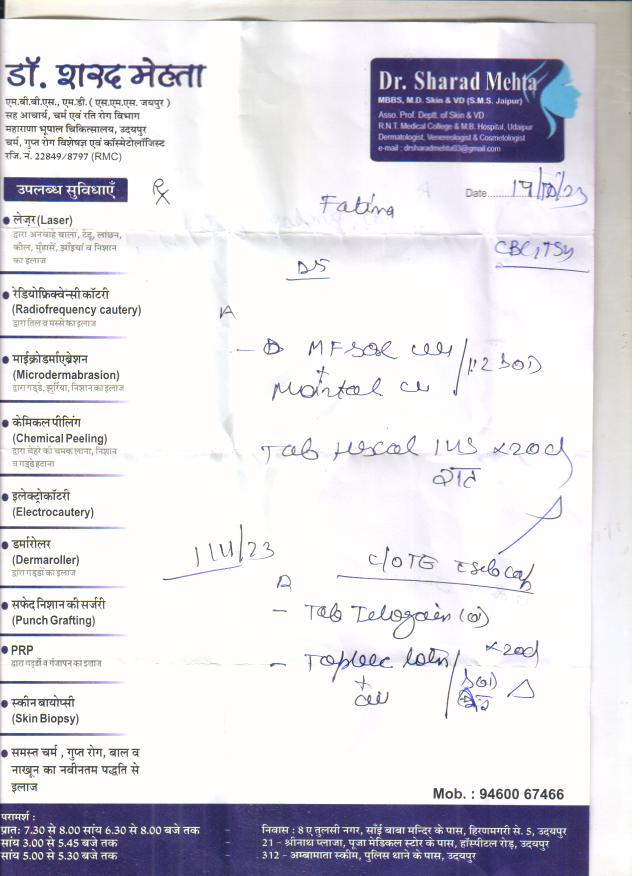 डॉ. शरद मेहता
एम.बी.बी.एस., एम.डी. ( एस.एम.एस. जयपुर )
सह आचार्य, चर्म एवं रति रोग विभाग
महाराणा भूपाल चिकित्सालय, उदयपुर
चर्म, गुप्त रोग विशेषज्ञ एवं कॉस्मेटोलॉजिस्ट
रजि. नं. 22849/8797 (RMC)
Dr. Sharad Mehta
MBBS, M.D. Skin & VD (S.M.S. Jaipur)
Asso. Prof. Deptt. of Skin & VD
R.N.T. Medical College & M.B. Hospital, Udaipur
Dermatologist, Venereologist & Cosmetologist
e-mail : drsharadmehta03@gmail.com
उपलब्ध सुविधाएँ
लेज़र (Laser)
द्वारा अनचाहे बाल, टैटू, लांछन,
कील, मुँहासे, झाँइयां व निशान
का इलाज
रेडियोफ्रिक्वेन्सी कॉटरी
(Radiofrequency cautery)
द्वारा तिल व मस्से का इलाज
माईक्रोडर्माएब्रेशन
(Microdermabrasion)
द्वारा गड्डे, झुर्रिया, निशान का इलाज
केमिकल पीलिंग
(Chemical Peeling)
द्वारा चेहरे की चमक लाना, निशान
व गड्डे हटाना
इलेक्ट्रोकॉटरी
(Electrocautery)
डर्मारोलर
(Dermaroller)
द्वारा गड्डों का इलाज
सफेद निशान की सर्जरी
(Punch Grafting)
PRP
द्वारा गड्डों व गंजापन का इलाज
स्कीन बायोप्सी
(Skin Biopsy)
समस्त चर्म , गुप्त रोग, बाल व
नाखून का नवीनतम पद्धति से
इलाज
℞
Date
Fatima
CBC, TSH
Tab x 20d
रात
1/11/23
Tab Telogain
lotn x20d
Mob. : 94600 67466
परामर्श :
प्रात: 7.30 से 8.00 सांय 6.30 से 8.00 बजे तक - निवास : 8 ए तुलसी नगर, साँई बाबा मन्दिर के पास, हिरणमगरी से. 5, उदयपुर
सांय 3.00 से 5.45 बजे तक - 21 - श्रीनाथ प्लाजा, पूजा मेडिकल स्टोर के पास, हॉस्पीटल रोड़, उदयपुर
सांय 5.00 से 5.30 बजे तक - 312 - अम्बामाता स्कीम, पुलिस थाने के पास, उदयपुर